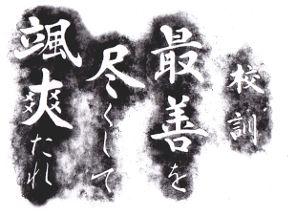 校訓
最善を
尽くして
颯爽たれ